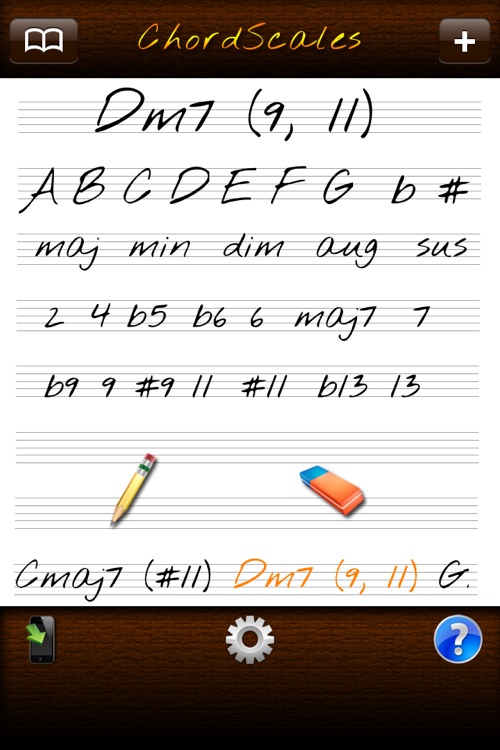 ChordScales
Dm7 (9, 11)
A B C D E F G b #
maj min dim aug sus
2 4 b5 b6 6 maj7 7
b9 9 #9 11 #11 b13 13
Cmaj7 (#11) Dm7 (9, 11) G.